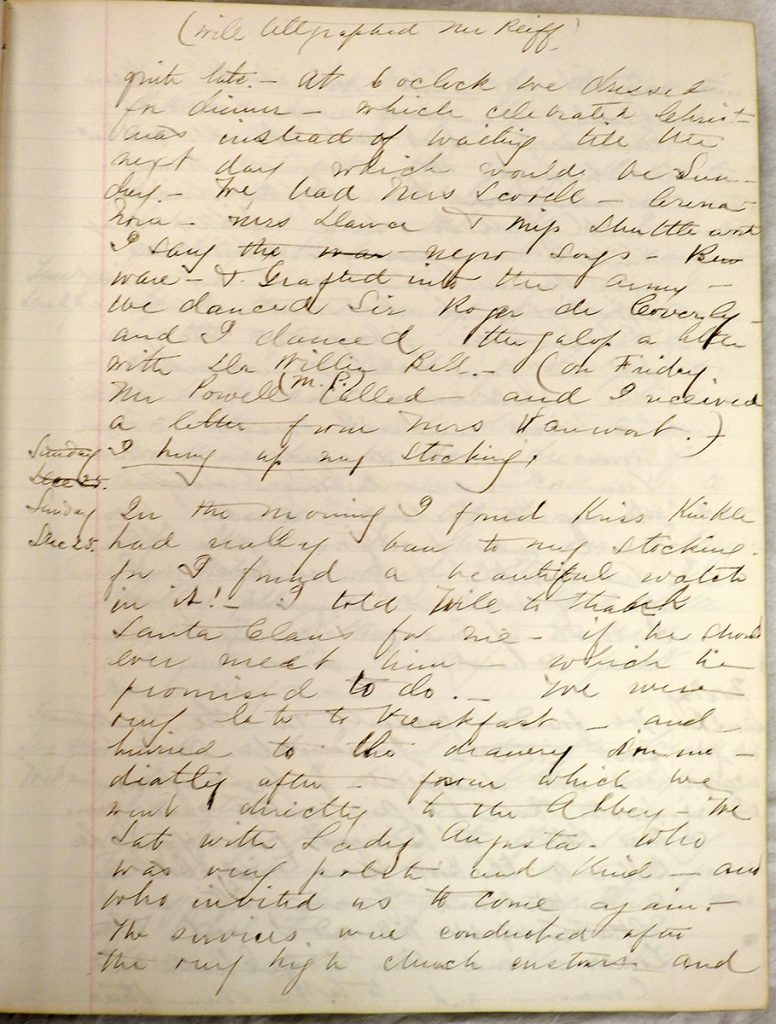 (Will telegraphed Mr Reiff)
quite late. - At 6 oclock we dressed
for dinner - which celebrated Christ-
mas instead of waiting till the
next day which would be Sun-
day. - We had Mrs Scovell -
Nora - Mrs & Miss Shuttleworth
I sang the war negro songs -
ware - & Grafted into the army -
We danced Sir Roger de Coverly -
and I danced the galop a little
with Willie Bell. - (On Friday
Mr Powell (M.P.) called - and I received
a letter from Mrs .)
Sunday
Dec 25.
I hung up my stocking.
Sunday
Dec 25.
In the morning I found Kriss Kinkle
had really been to my stocking
for I found a beautiful watch
in it! - I told Wile to thank
Santa Claus for me - if he should
ever meet him - which he
promised to do. - We were
very late to breakfast - and
hurried to the deanery imme-
diatly after - from which we
went directly to the Abbey - We
sat with Lady Augusta - who
was very polite and kind - and
who invited us to come again. -
The services were conducted after
the very high church customs and